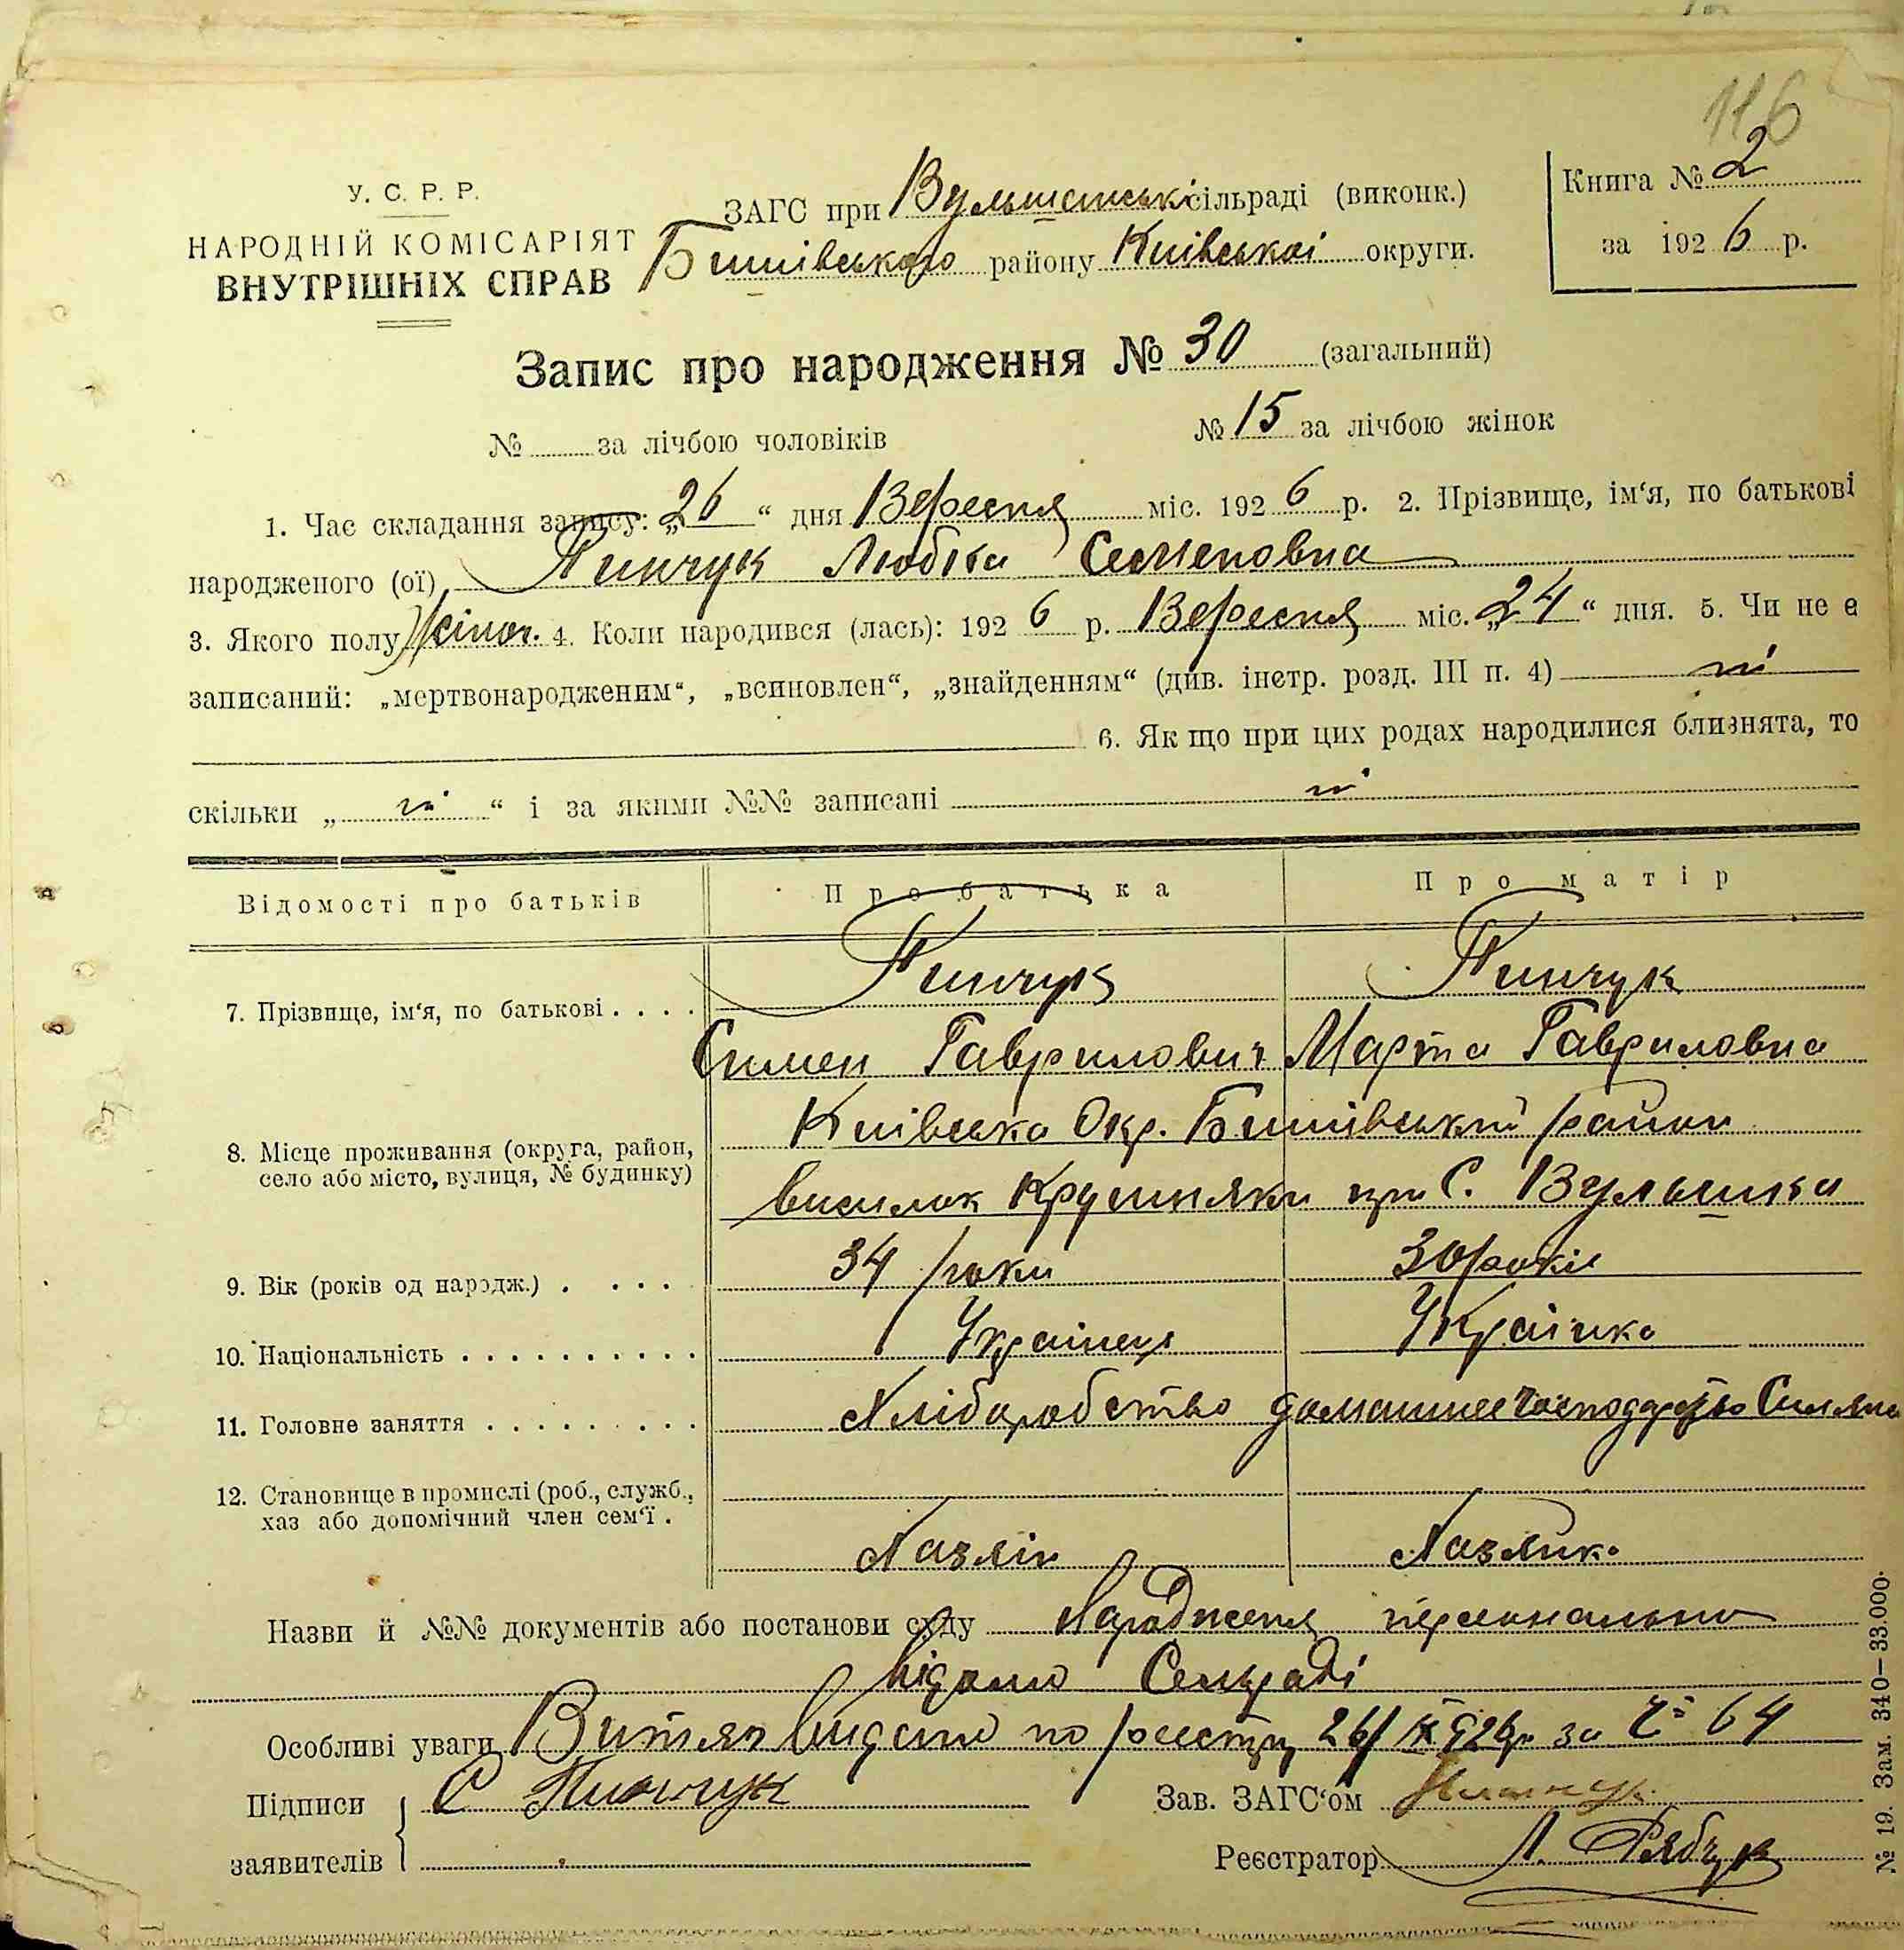 116
У. С. Р. Р.
НАРОДНІЙ КОМІСАРІЯТ
ВНУТРІШНІХ СПРАВ
ЗАГС при Вульшенські сільраді (виконк.)
Бишівського району Київської округи.
Книга № 2
за 1926 р.
Запис про народження № 30 (загальний)
№ за лічбою чоловіків № 15 за лічбою жінок
1. Час складання запису: „26“ дня Вересня міс. 1926 р. 2. Прізвище, ім‘я, по батькові
народженого (ої) Пинчук Любка Семеновна
3. Якого полу жіноч. 4. Коли народився (лась): 1926 р. Вересня міс. „24“ дня. 5. Чи не е
записаний: „мертвонародженим“, „всиновлен“, „знайденням“ (див. інстр. розд. III п. 4) ні
6. Як що при цих родах народилися близнята, то
скільки „ ні “ і за якими №№ записані ні
Відомості про батьків Про батька Про матір
7. Прізвище, ім‘я, по батькові . . . . Пинчук Пинчук
Симен Гаврилович Марта Гавриловна
8. Місце проживання (округа, район, село або місто, вулиця, № будинку) Київська Окр. Бишівський район
висилок Крушняки при С. Вульшка
9. Вік (років од народж.) . . . . 34 роки 30 років
10. Національність . . . . . . . . . . Українець Українка
11. Головне заняття . . . . . . . . . Хліборобство домашнее господарство
12. Становище в промислі (роб., служб., хаз або допомічний член сем‘ї .
Хазяін Хазяйка
Назви й №№ документів або постанови суду Народження персонально
відомо Сельраді
Особливі уваги Витяг видано по реестру 26/IX 926р за № 64
Підписи С Пинчук Зав. ЗАГС‘ом
заявителів Реєстратор Л. Рябчук
№ 19. Зам. 340—33.000.